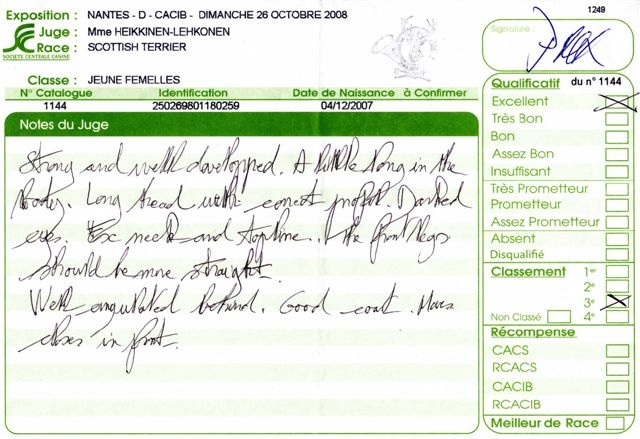 Exposition : NANTES - D - CACIB - DIMANCHE 26 OCTOBRE 2008
Juge : Mme HEIKKINEN-LEHKONEN
Race : SCOTTISH TERRIER
SOCIETE CENTRALE CANINE
Classe : JEUNE FEMELLES
N° Catalogue Identification Date de Naissance à Confirmer
1144 250269801180259 04/12/2007
Notes du Juge
Strong and well developped. A little long in the
body. Long head with correct profil. Darked
eyes. Exc neck and topline. the front legs
should be more straight.
Well angulated behind. Good coat. Moves
closes in front.
1249
Signature :
Qualificatif du n° 1144
Excellent
Très Bon
Bon
Assez Bon
Insuffisant
Très Prometteur
Prometteur
Assez Prometteur
Absent
Disqualifié
Classement 1er
2e
3e
Non Classé 4e
Récompense
CACS
RCACS
CACIB
RCACIB
Meilleur de Race